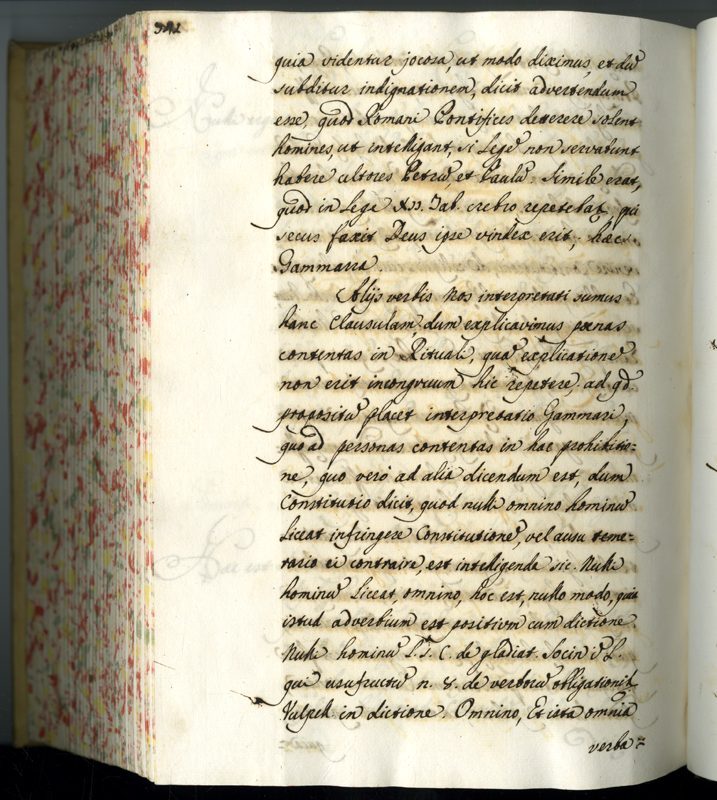 342
quia videntur jocosa, ut modo diximus, et dũ
subditur indignationem, dicit advertendum
esse, quod Romani Pontifices deterrere solent
homines, ut intelligant, si Legẽ non servabunt
habere ultores Petrũ, et Paulũ. Simile erat,
quod in Lege XII. Tab. crebro repetebat, qui
secus faxit Deus ipse vindex erit; hæc
Gammarra.
Alijs verbis nos interpretati sumus
hanc Clausulam, dum explicavimus pœnas
contentas in Rituali, quã explicationẽ
non erit incongruum hic repetere; ad qd.
propositũ placet interpretatio Gammari,
quoad personas contentas in hac prohibitio=
ne, quo verò ad alia dicendum est, dum
Constitutio dicit, quod nulli omnino hominũ
liceat infringere Constitutionẽ, vel ausu teme=
rario ei contraire, est intelligenda sic. Nulli
hominũ liceat omnino, hoc est, nullo modo, quia
istud adverbium est positivm cum dictione.
Nulli hominũ L. 1. C. de gladiat. Socin. i L.
qui usufructũ n. 8. de verborũ obligationib.
Vulpell. in dictione. Omnino, Et ista omnia
verba=